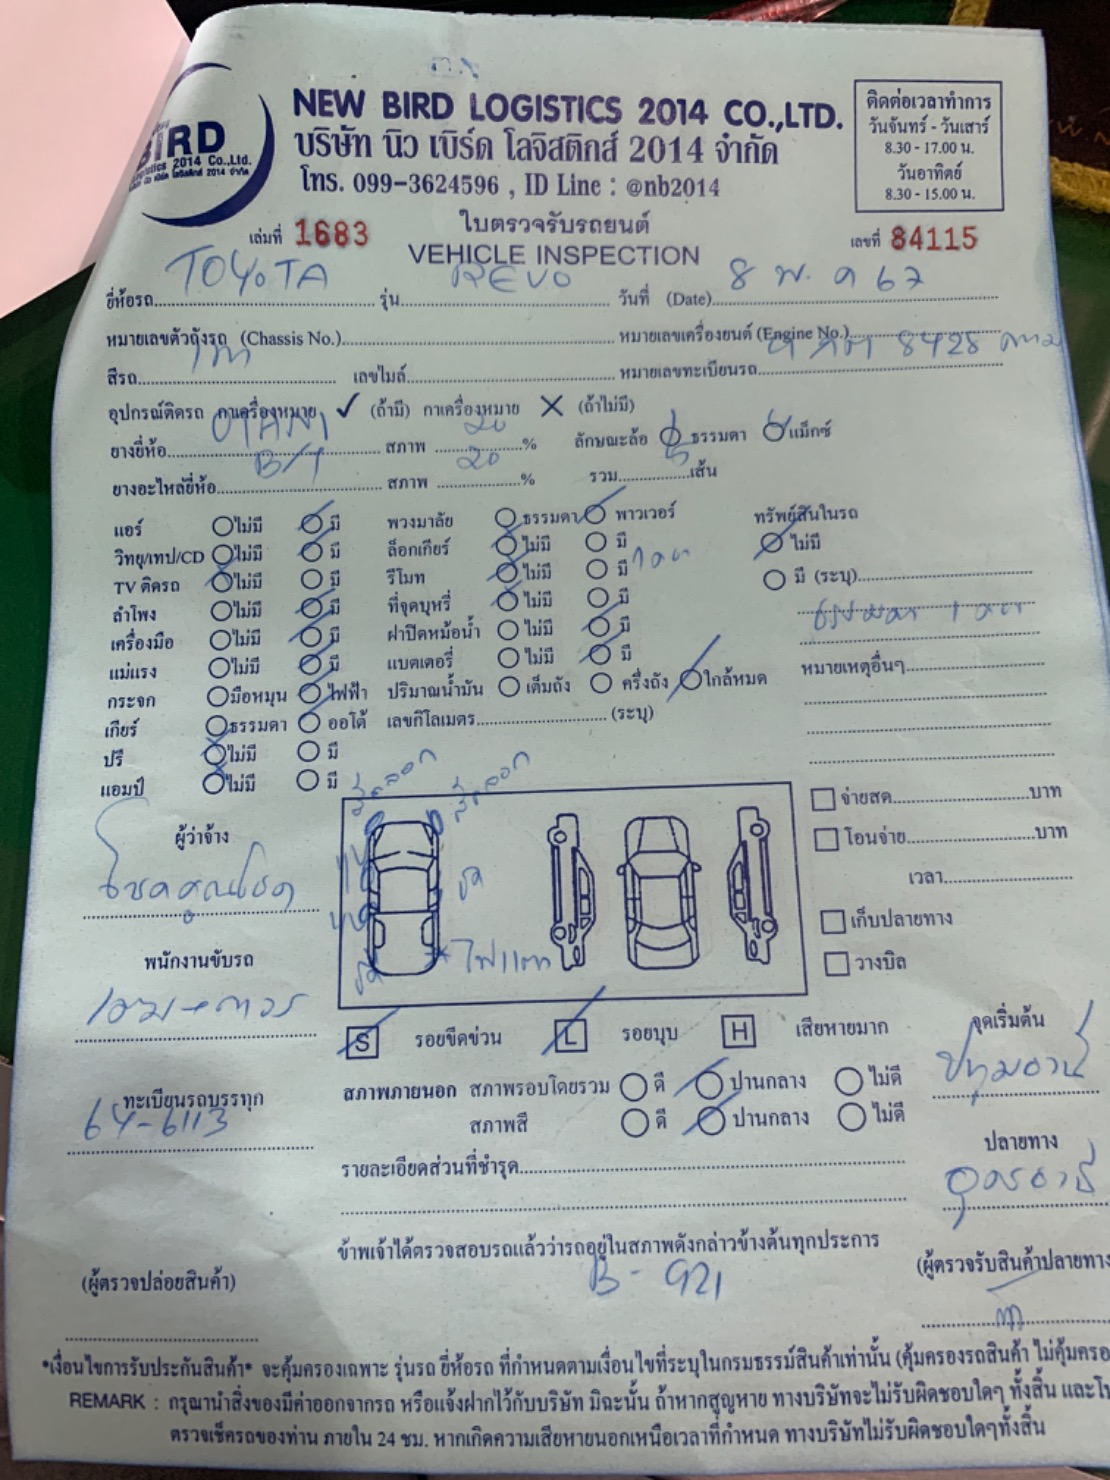 NEW BIRD LOGISTICS 2014 CO.,LTD.
บริษัท นิว เบิร์ด โลจิสติกส์ 2014 จำกัด
โทร. 099-3624596 , ID Line : @nb2014
BIRD
2014 Co.,Ltd.
ติดต่อเวลาทำการ
วันจันทร์ - วันเสาร์
8.30 - 17.00 น.
วันอาทิตย์
8.30 - 15.00 น.
เล่มที่ 1683 ใบตรวจรับรถยนต์ เลขที่ 84115
VEHICLE INSPECTION
ยี่ห้อรถ TOYOTA รุ่น REVO วันที่ (Date) 8 พ.ค 67
หมายเลขตัวถังรถ (Chassis No.) หมายเลขเครื่องยนต์ (Engine No.)
สีรถ เทา เลขไมล์ หมายเลขทะเบียนรถ 8428
อุปกรณ์ติดรถ กาเครื่องหมาย ✓ (ถ้ามี) กาเครื่องหมาย ✕ (ถ้าไม่มี)
ยางยี่ห้อ OTANI สภาพ 20 % ลักษณะล้อ ธรรมดา แม็กซ์
ยางอะไหล่ยี่ห้อ B/T สภาพ 20 % รวม 5 เส้น
แอร์ ไม่มี มี พวงมาลัย ธรรมดา พาวเวอร์ ทรัพย์สินในรถ
วิทยุ/เทป/CD ไม่มี มี ล็อกเกียร์ ไม่มี มี ไม่มี
TV ติดรถ ไม่มี มี รีโมท ไม่มี มี มี (ระบุ)
ลำโพง ไม่มี มี ที่จุดบุหรี่ ไม่มี มี
เครื่องมือ ไม่มี มี ฝาปิดหม้อน้ำ ไม่มี มี
แม่แรง ไม่มี มี แบตเตอรี่ ไม่มี มี หมายเหตุอื่นๆ
กระจก มือหมุน ไฟฟ้า ปริมาณน้ำมัน เต็มถัง ครึ่งถัง ใกล้หมด
เกียร์ ธรรมดา ออโต้ เลขกิโลเมตร (ระบุ)
ปรี ไม่มี มี
แอมป์ ไม่มี มี
จ่ายสด บาท
โอนจ่าย บาท
เวลา
เก็บปลายทาง
วางบิล
ผู้ว่าจ้าง
โชคคูณโชค
พนักงานขับรถ
ไฟแตก
S รอยขีดข่วน L รอยบุบ H เสียหายมาก
จุดเริ่มต้น
ปทุมธานี
สภาพภายนอก สภาพรอบโดยรวม ดี ปานกลาง ไม่ดี
สภาพสี ดี ปานกลาง ไม่ดี
ทะเบียนรถบรรทุก
64-6113
ปลายทาง
อุดรธานี
รายละเอียดส่วนที่ชำรุด
ข้าพเจ้าได้ตรวจสอบรถแล้วว่ารถอยู่ในสภาพดังกล่าวข้างต้นทุกประการ
B-921
(ผู้ตรวจปล่อยสินค้า) (ผู้ตรวจรับสินค้าปลายทาง
*เงื่อนไขการรับประกันสินค้า* จะคุ้มครองเฉพาะ รุ่นรถ ยี่ห้อรถ ที่กำหนดตามเงื่อนไขที่ระบุในกรมธรรม์สินค้าเท่านั้น (คุ้มครองรถสินค้า ไม่คุ้มครอ
REMARK : กรุณานำสิ่งของมีค่าออกจากรถ หรือแจ้งฝากไว้กับบริษัท มิฉะนั้น ถ้าหากสูญหาย ทางบริษัทจะไม่รับผิดชอบใดๆ ทั้งสิ้น และโป
ตรวจเช็ครถของท่าน ภายใน 24 ชม. หากเกิดความเสียหายนอกเหนือเวลาที่กำหนด ทางบริษัทไม่รับผิดชอบใดๆทั้งสิ้น